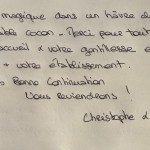 magique dans un hâvre d
cocon - Merci pour tout
accueil & votre gentillesse e
& votre établissement.
Bonne Continuation
Nous reviendrons !
Christophe &